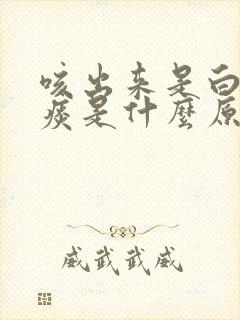 咳出来是白
痰是什麼原
威武武威